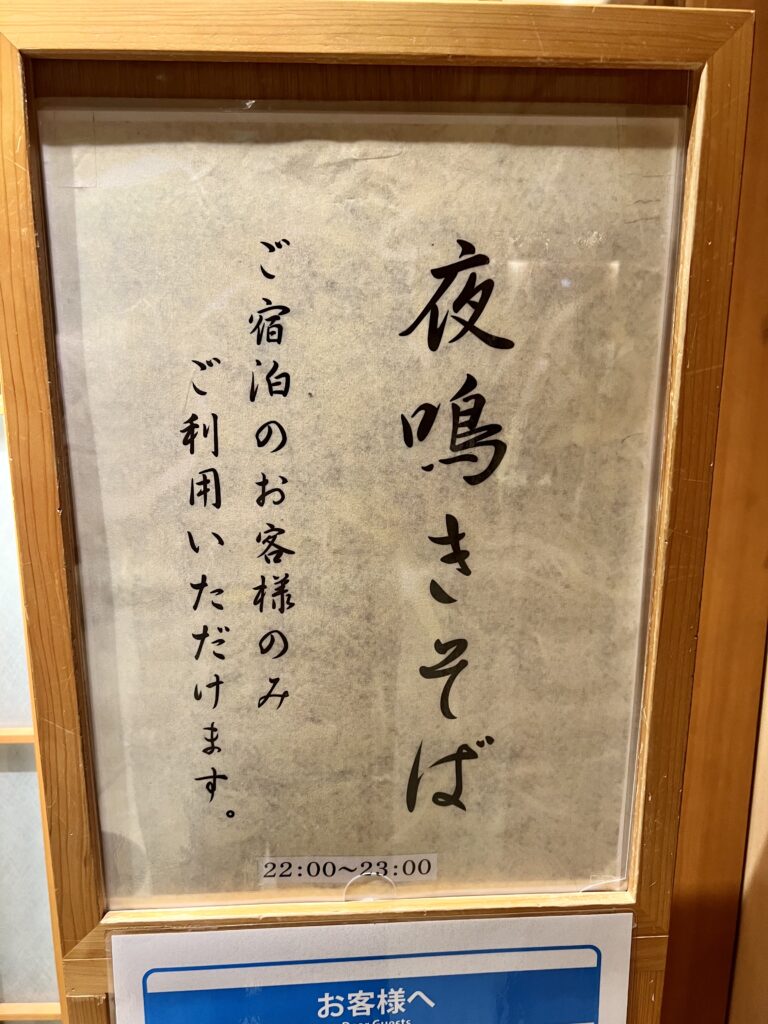 夜鳴きそば
ご宿泊のお客様のみ
ご利用いただけます。
22:00～23:00
お客様へ
Dear Guests